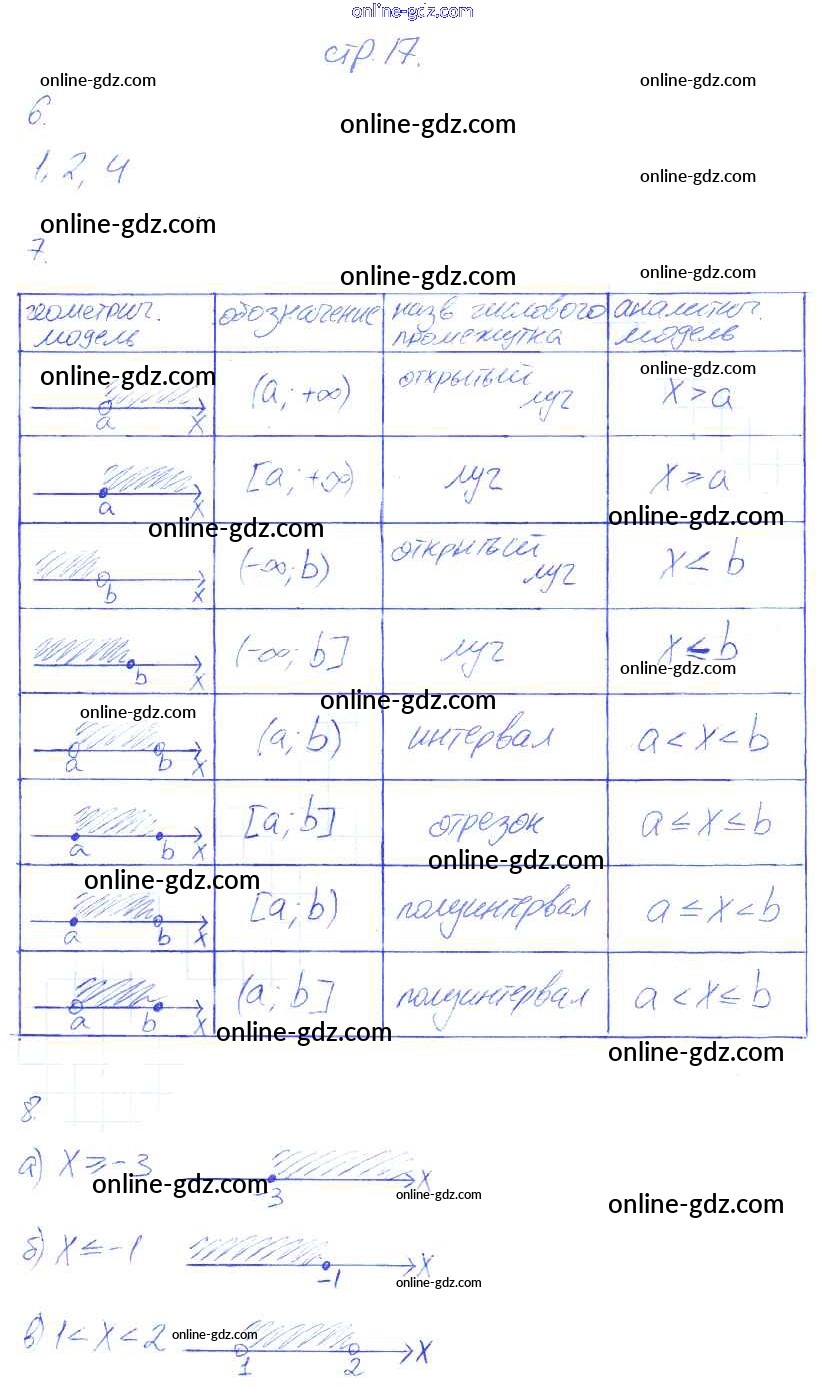 online-gdz.com
стр. 17.
online-gdz.com online-gdz.com
6.
online-gdz.com
1, 2, 4
online-gdz.com
online-gdz.com
7.
online-gdz.com online-gdz.com
геометрич. модель обозначение назв числового промежутка аналитич. модель
online-gdz.com online-gdz.com
a x (a; +∞) открытый луч x > a
a x [a; +∞) луч x ≥ a
online-gdz.com online-gdz.com
b x (-∞; b) открытый луч x < b
b x (-∞; b] луч x ≤ b
online-gdz.com
online-gdz.com online-gdz.com
a b x (a; b) интервал a < x < b
a b x [a; b] отрезок a ≤ x ≤ b
online-gdz.com
online-gdz.com
a b x [a; b) полуинтервал a ≤ x < b
a b x (a; b] полуинтервал a < x ≤ b
online-gdz.com
online-gdz.com
8.
а) x ≥ -3 -3 x
online-gdz.com online-gdz.com online-gdz.com
б) x ≤ -1 -1 x
online-gdz.com
в) 1 < x < 2 1 2 x
online-gdz.com